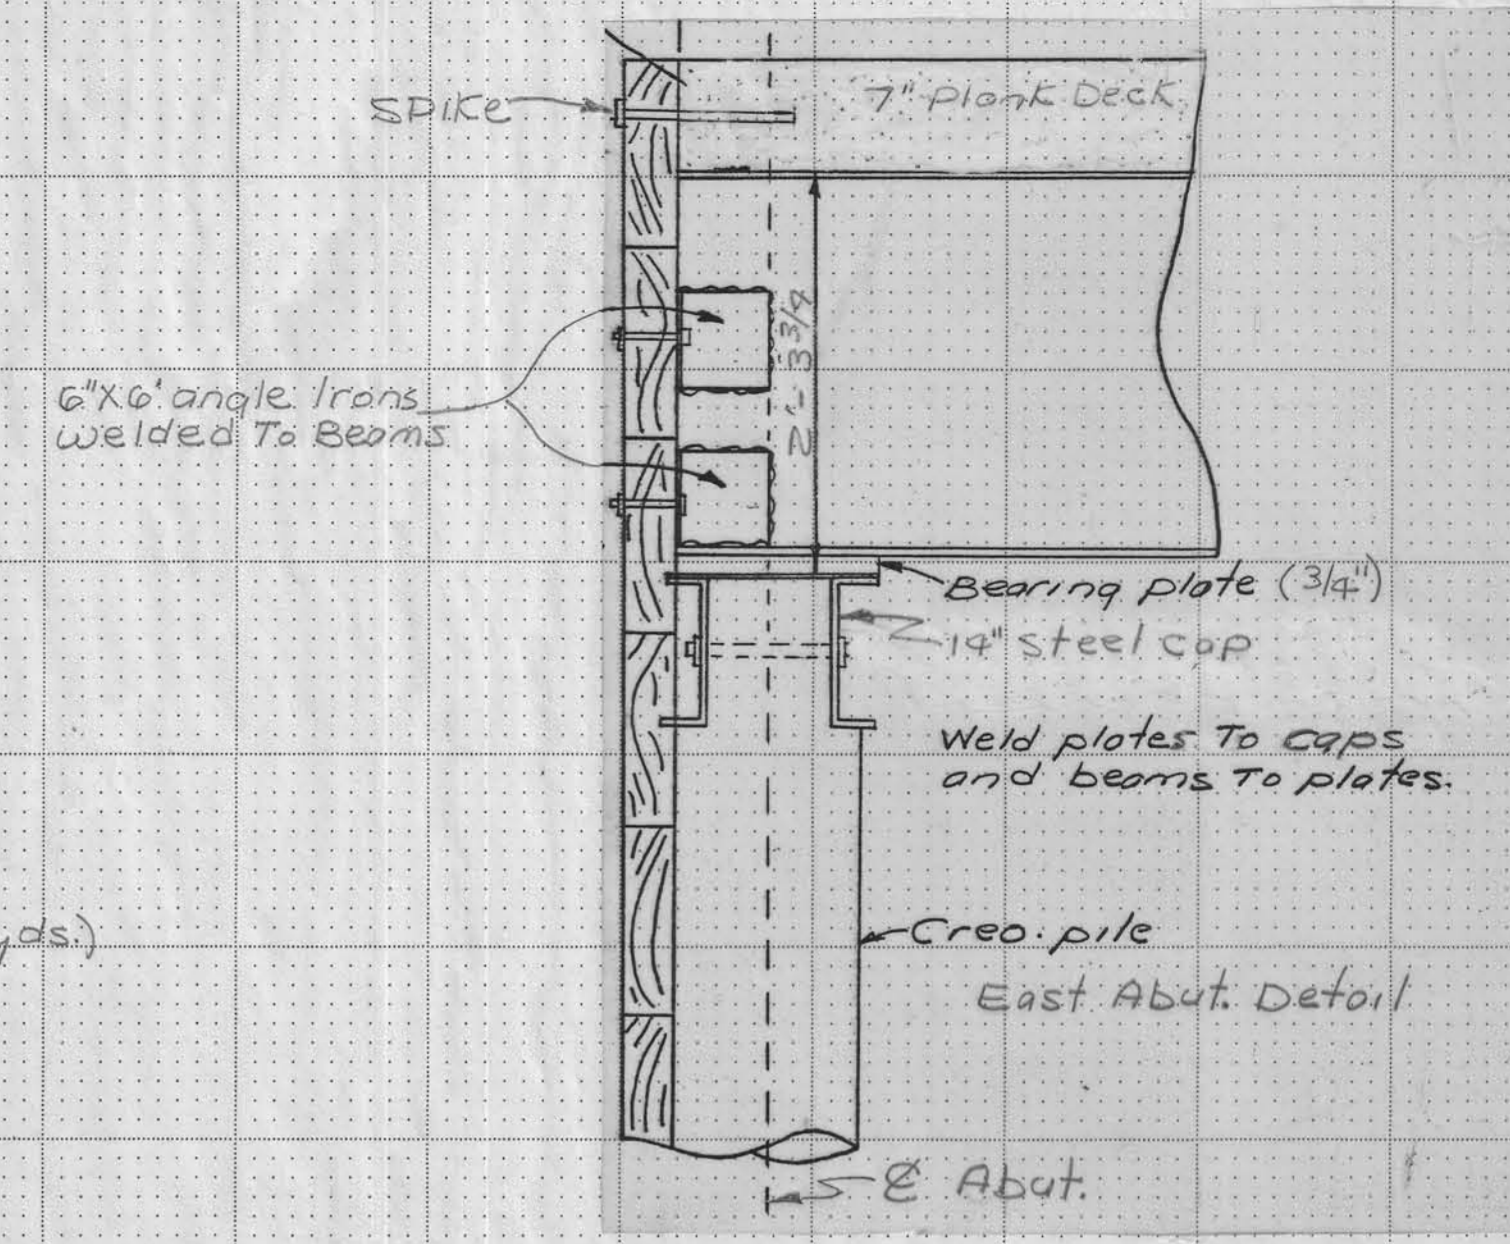 SPIKE
7" Plank Deck
2'-3 3/4
6"X6" angle Irons
welded To Beams
Bearing plate (3/4")
14" steel cap
Weld plates To caps
and beams To plates.
yds.)
Creo. pile
East Abut. Detail
℄ Abut.